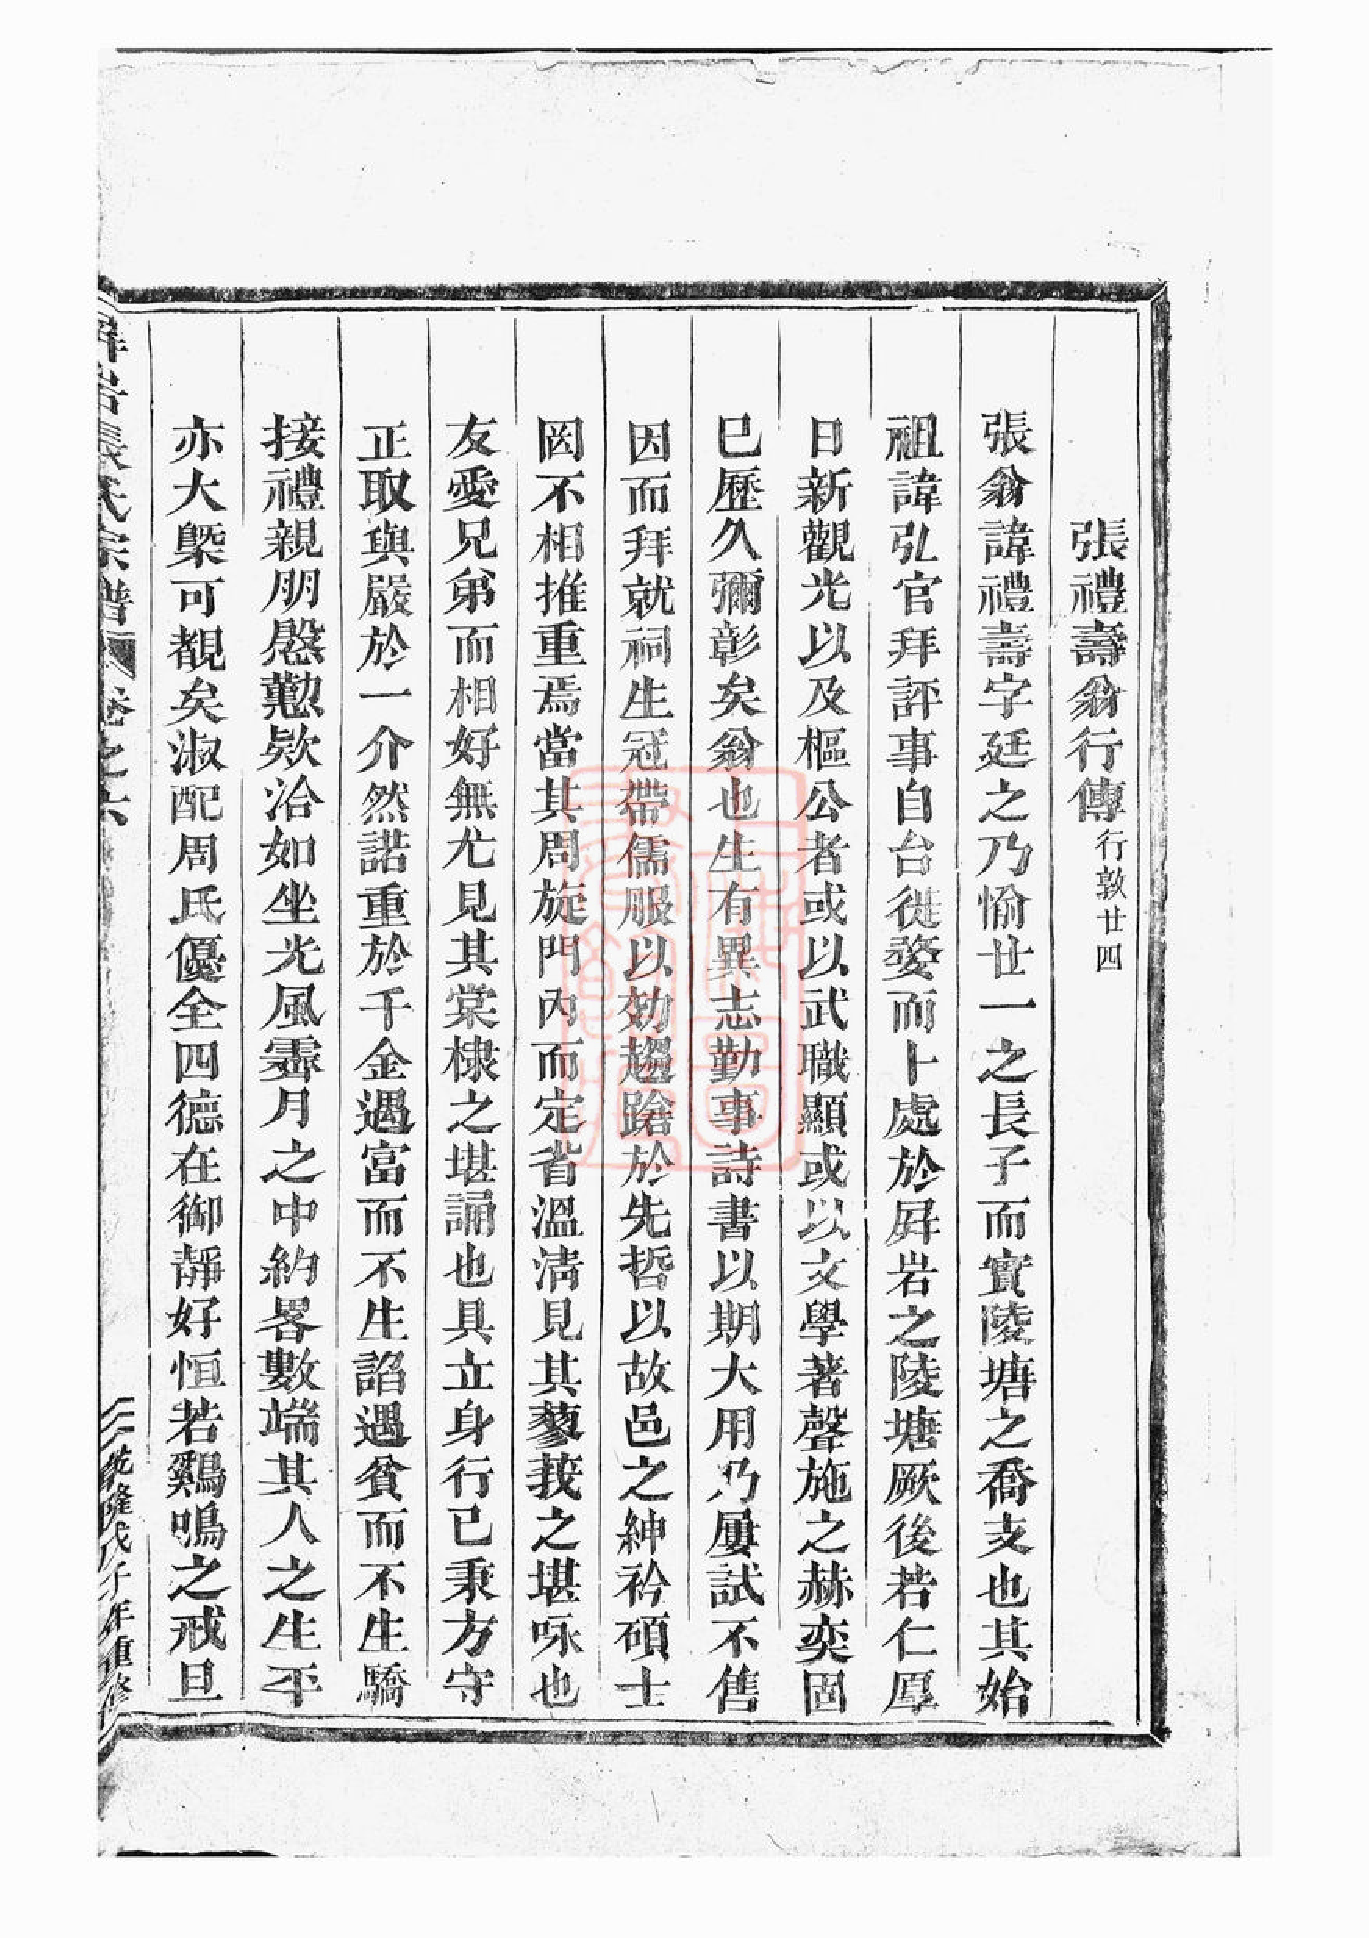 張禮壽翁行傳行敦廿四
張翁諱禮壽字廷之乃愉廿一之長子而實陵塘之喬支也其始
祖諱弘官拜評事自台徙婺而卜處於屏岩之陵塘厥後若仁厚
日新觀光以及樞公者或以武職顯或以文學著聲施之赫奕固
已歷久彌彰矣翁也生有異志勤事詩書以期大用乃屢試不售
因而拜就祠生冠帶儒服以効趨蹌於先哲以故邑之紳衿碩士
罔不相推重焉當其周旋門內而定省溫清見其蓼莪之堪咏也
友愛兄弟而相好無尤見其棠棣之堪誦也具立身行已秉方守
正取與嚴於一介然諾重於千金遇富而不生諂遇貧而不生驕
接禮親朋慇懃欵洽如坐光風霽月之中約畧數端其人之生平
亦大槩可覩矣淑配周氏優全四德在御靜好恒若鷄鳴之戒旦
屏岩張氏宗譜 卷之六 乾隆戊子年重修